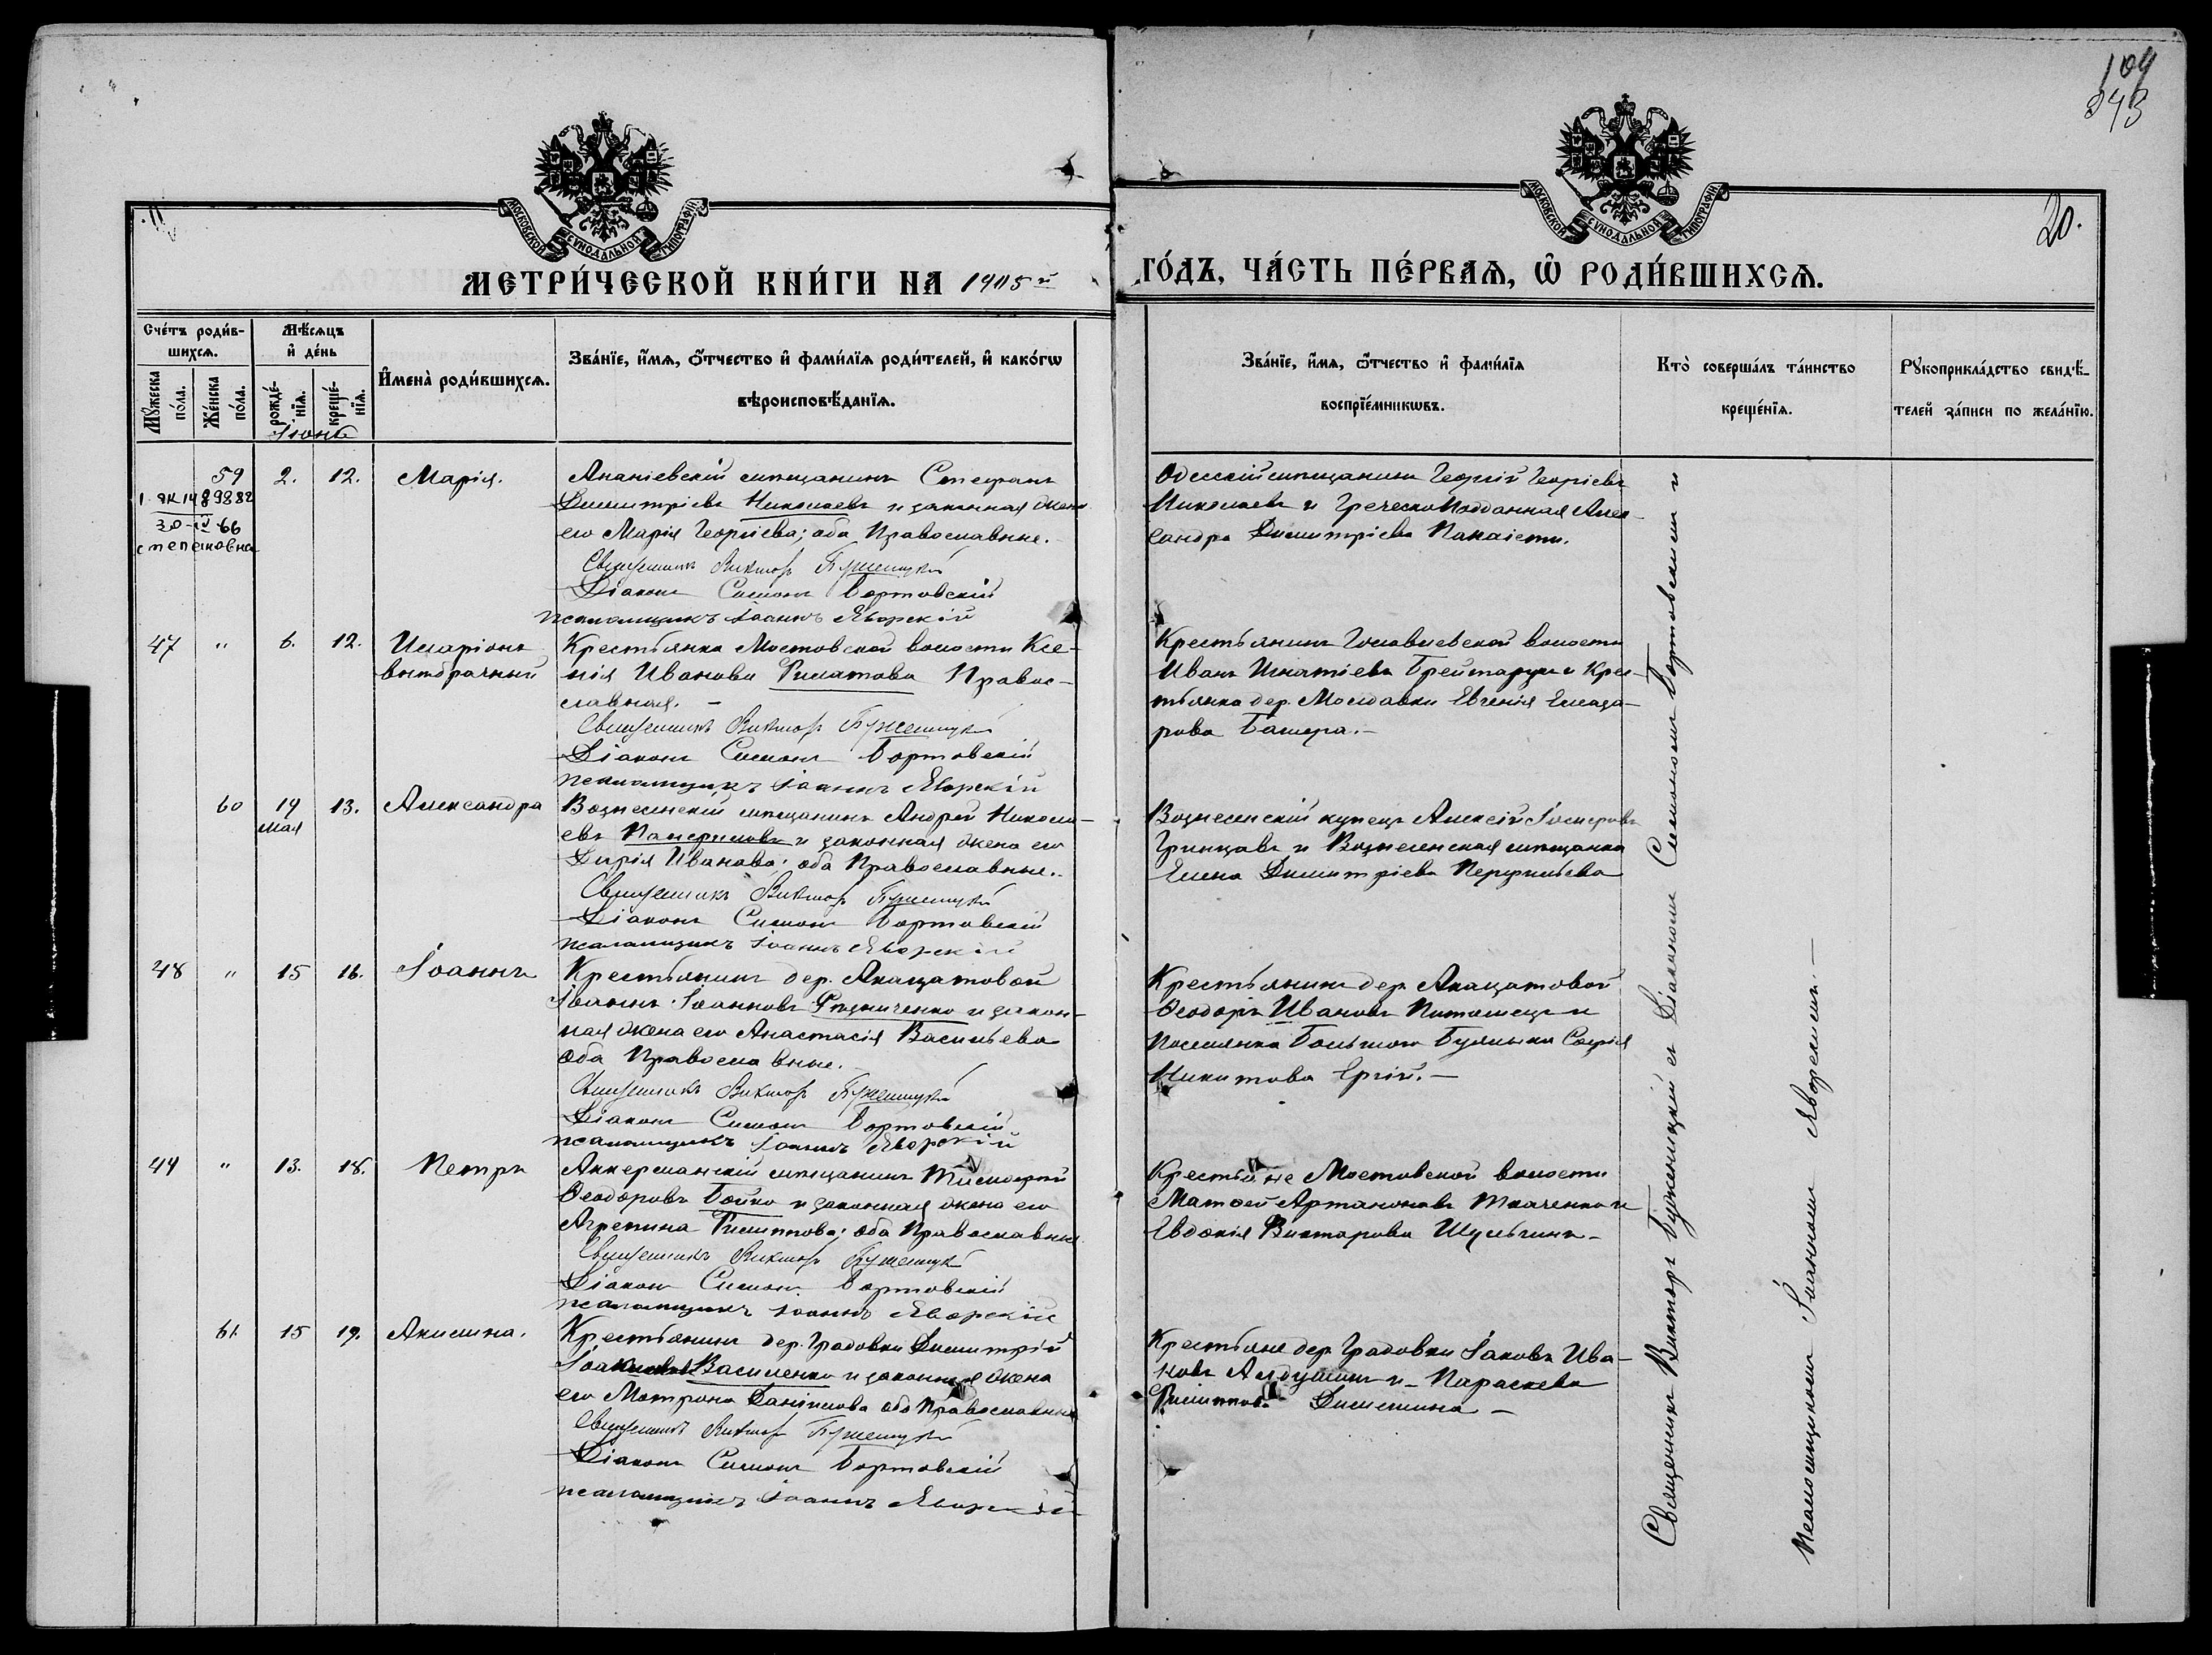 104
343
20.
МОСКОВСКОЙ СУНОДАЛЬНОЙ ТИПОГРАФІИ
МОСКОВСКОЙ СУНОДАЛЬНОЙ ТИПОГРАФІИ
МЕТРИ́ЧЕСКОЙ КНИ́ГИ НА 1905й
ГО́ДЪ, ЧА́СТЬ ПЕ́РВАѦ, Ѡ РОДИ́ВШИХСѦ.
Сче́тъ роди́в-
шихсѧ.
Мꙋ́жеска по́ла.
Же́нска по́ла.
Мѣ́сѧцъ
и҆ де́нь
рожде́-
нїѧ.
креще́-
нїѧ.
Іюнь
И҆мена̀ роди́вшихсѧ.
Зва́нїе, и҆́мѧ, ѻ҆́тчество и҆ фами́лїѧ роди́телей, и҆ како́гѡ
вѣроисповѣ́данїѧ.
Зва́нїе, и҆́мѧ, ѻ҆́тчество и҆ фами́лїѧ
воспрїе́мникѡвъ.
Кто̀ соверша́лъ та́инство
креще́нїѧ.
Рꙋкоприкла́дство свидѣ́-
телей за́писи по жела́нїю.
59 2. 12. Марія.
1-ЯК 1489882
30-IV-66
степановна
Ананіевскій мѣщанинъ Стефанъ
Димитріевъ Николаевъ и законная жена
его Марія Георгіева; оба Православные.
Священникъ Викторъ Буженицкій
Діаконъ Симонъ Бортовскій
псаломщикъ Іоаннъ Яворскій
Одесскій мѣщанинъ Георгій Георгіевъ
Николаевъ и Греческо Подданная Алек-
сандра Димитріева
47 " 6. 12. Иларіонъ
внѣбрачный
Крестьянка Мостовской волости Ксе-
нія Иванова Филатова Правос-
славная. -
Священникъ Викторъ Буженицкій
Діаконъ Симонъ Бортовскій
псаломщикъ Іоаннъ Яворскій
Крестьянинъ волости
Иванъ Игнатіевъ и Крес-
тьянка дер. Молдавки Евгенія Елеаза-
рова
60 19 13. Александра
мая
Вознесенскій мѣщанинъ Андрей Никола-
евъ и законная жена его
Дарія Иванова; оба Православные.
Священникъ Викторъ Буженицкій
Діаконъ Симонъ Бортовскій
псаломщикъ Іоаннъ Яворскій
Вознесенскій купецъ Алексій Іосифовъ
и Вознесенская мѣщанка
Елена Димитріева Перфильева
48 " 15 16. Іоаннъ
Крестьянинъ дер. Акацатовой
Іоаннъ Іоанновъ и закон-
ная жена его Анастасія Васильева
оба Православные.
Священникъ Викторъ Буженицкій
Діаконъ Симонъ Бортовскій
псаломщикъ Іоаннъ Яворскій
Крестьянинъ дер. Акацатовой
Ѳеодоръ Ивановъ и
Поселянка Большого Буялыка Софія
Никитова
44 " 13. 18. Петръ
Аккерманскій мѣщанинъ Тимофей
Ѳеодоровъ Бойко и законная жена его
Агрепина Филиппова; оба Православные
Священникъ Викторъ Буженицкій
Діаконъ Симонъ Бортовскій
псаломщикъ Іоаннъ Яворскій
Крестьяне Мостовской волости
Матѳей Артамоновъ Ткаченко и
Евдокія Викторова
61. 15 19. Акилина.
Крестьянинъ дер. Градовки Димитрій
Василенко и законная жена
его Матрона Даніилова оба Православные
Священникъ Викторъ Буженицкій
Діаконъ Симонъ Бортовскій
псаломщикъ Іоаннъ Яворскій
Крестьяне дер. Градовки Іаковъ Ива-
новъ и Параскева
Филиппова
Священникъ Викторъ Буженицкій съ Діакономъ Симономъ Бортовскимъ и
Псаломщикомъ Іоанномъ Яворскимъ.-